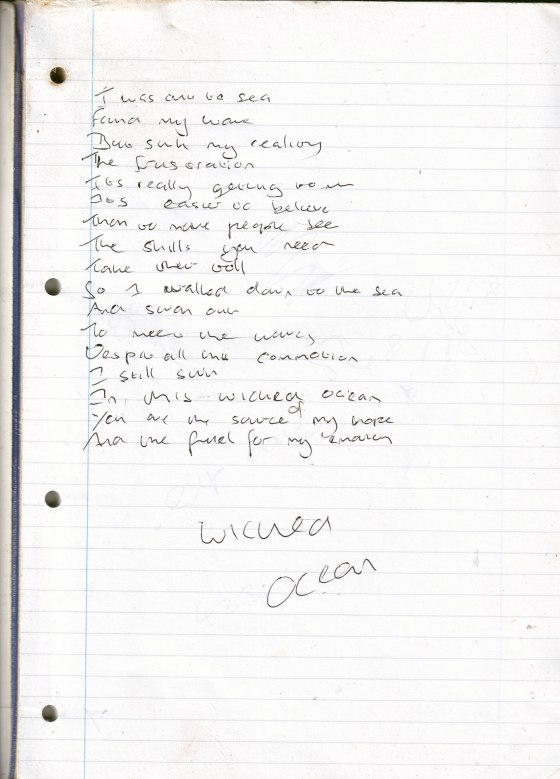 I was out to sea
Found my wave
But sunk my reality
The frustration
Its really getting to me
Its easier to believe
Than to make people see
The skills you need
Take their toll
So I walked down to the sea
And swam out
To meet the waves
Despite all this commotion
I still swim
In this wicked ocean
You are the source of my hope
And the fuel for my emotion
wicked
ocean